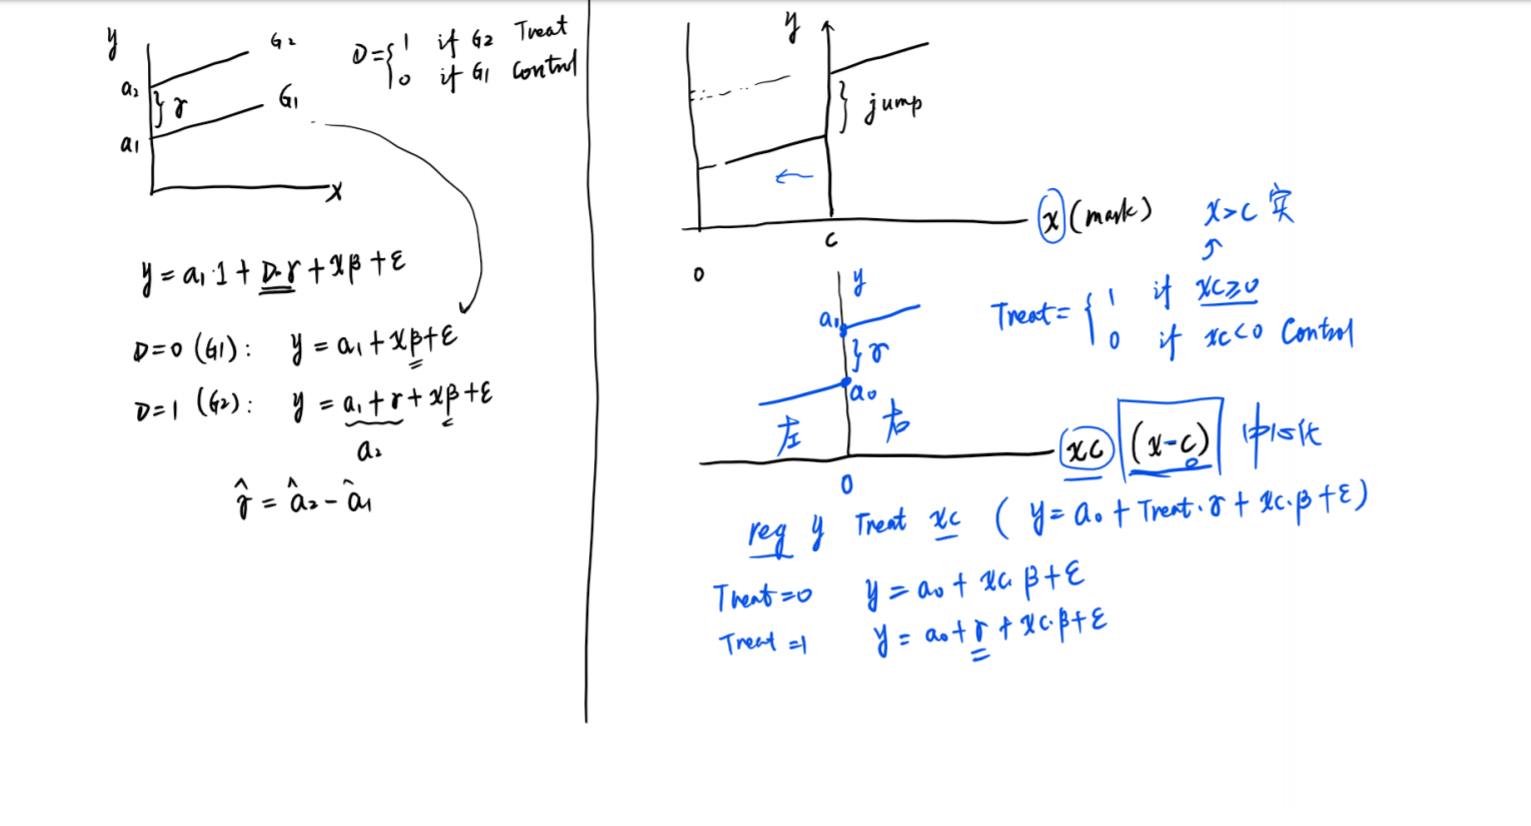 y
G2
a2
}γ
G1
a1
x
D={1 if G2 Treat
0 if G1 Control
y = a1·1 + D·γ + xβ + ε
D=0 (G1): y = a1 + xβ + ε
D=1 (G2): y = a1 + γ + xβ + ε
a2
γ̂ = â2 - â1
y
} jump
x (mark)
c
0
x>c 实
Treat = {1 if xc≥0
0 if xc<0 Control
y
a1
}γ
a0
左 右
xc (x-c) 中心化
0
reg y Treat xc ( y = a0 + Treat·γ + xc·β + ε)
Treat=0 y = a0 + xc·β + ε
Treat=1 y = a0 + γ + xc·β + ε